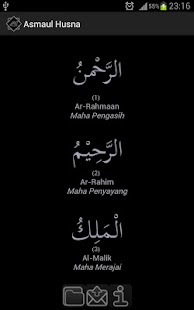 23:16
Asmaul Husna
الرَّحْمٰنُ
(1)
Ar-Rahmaan
Maha Pengasih
الرَّحِيْمُ
(2)
Ar-Rahim
Maha Penyayang
الْمَلِكُ
(3)
Al-Malik
Maha Merajai